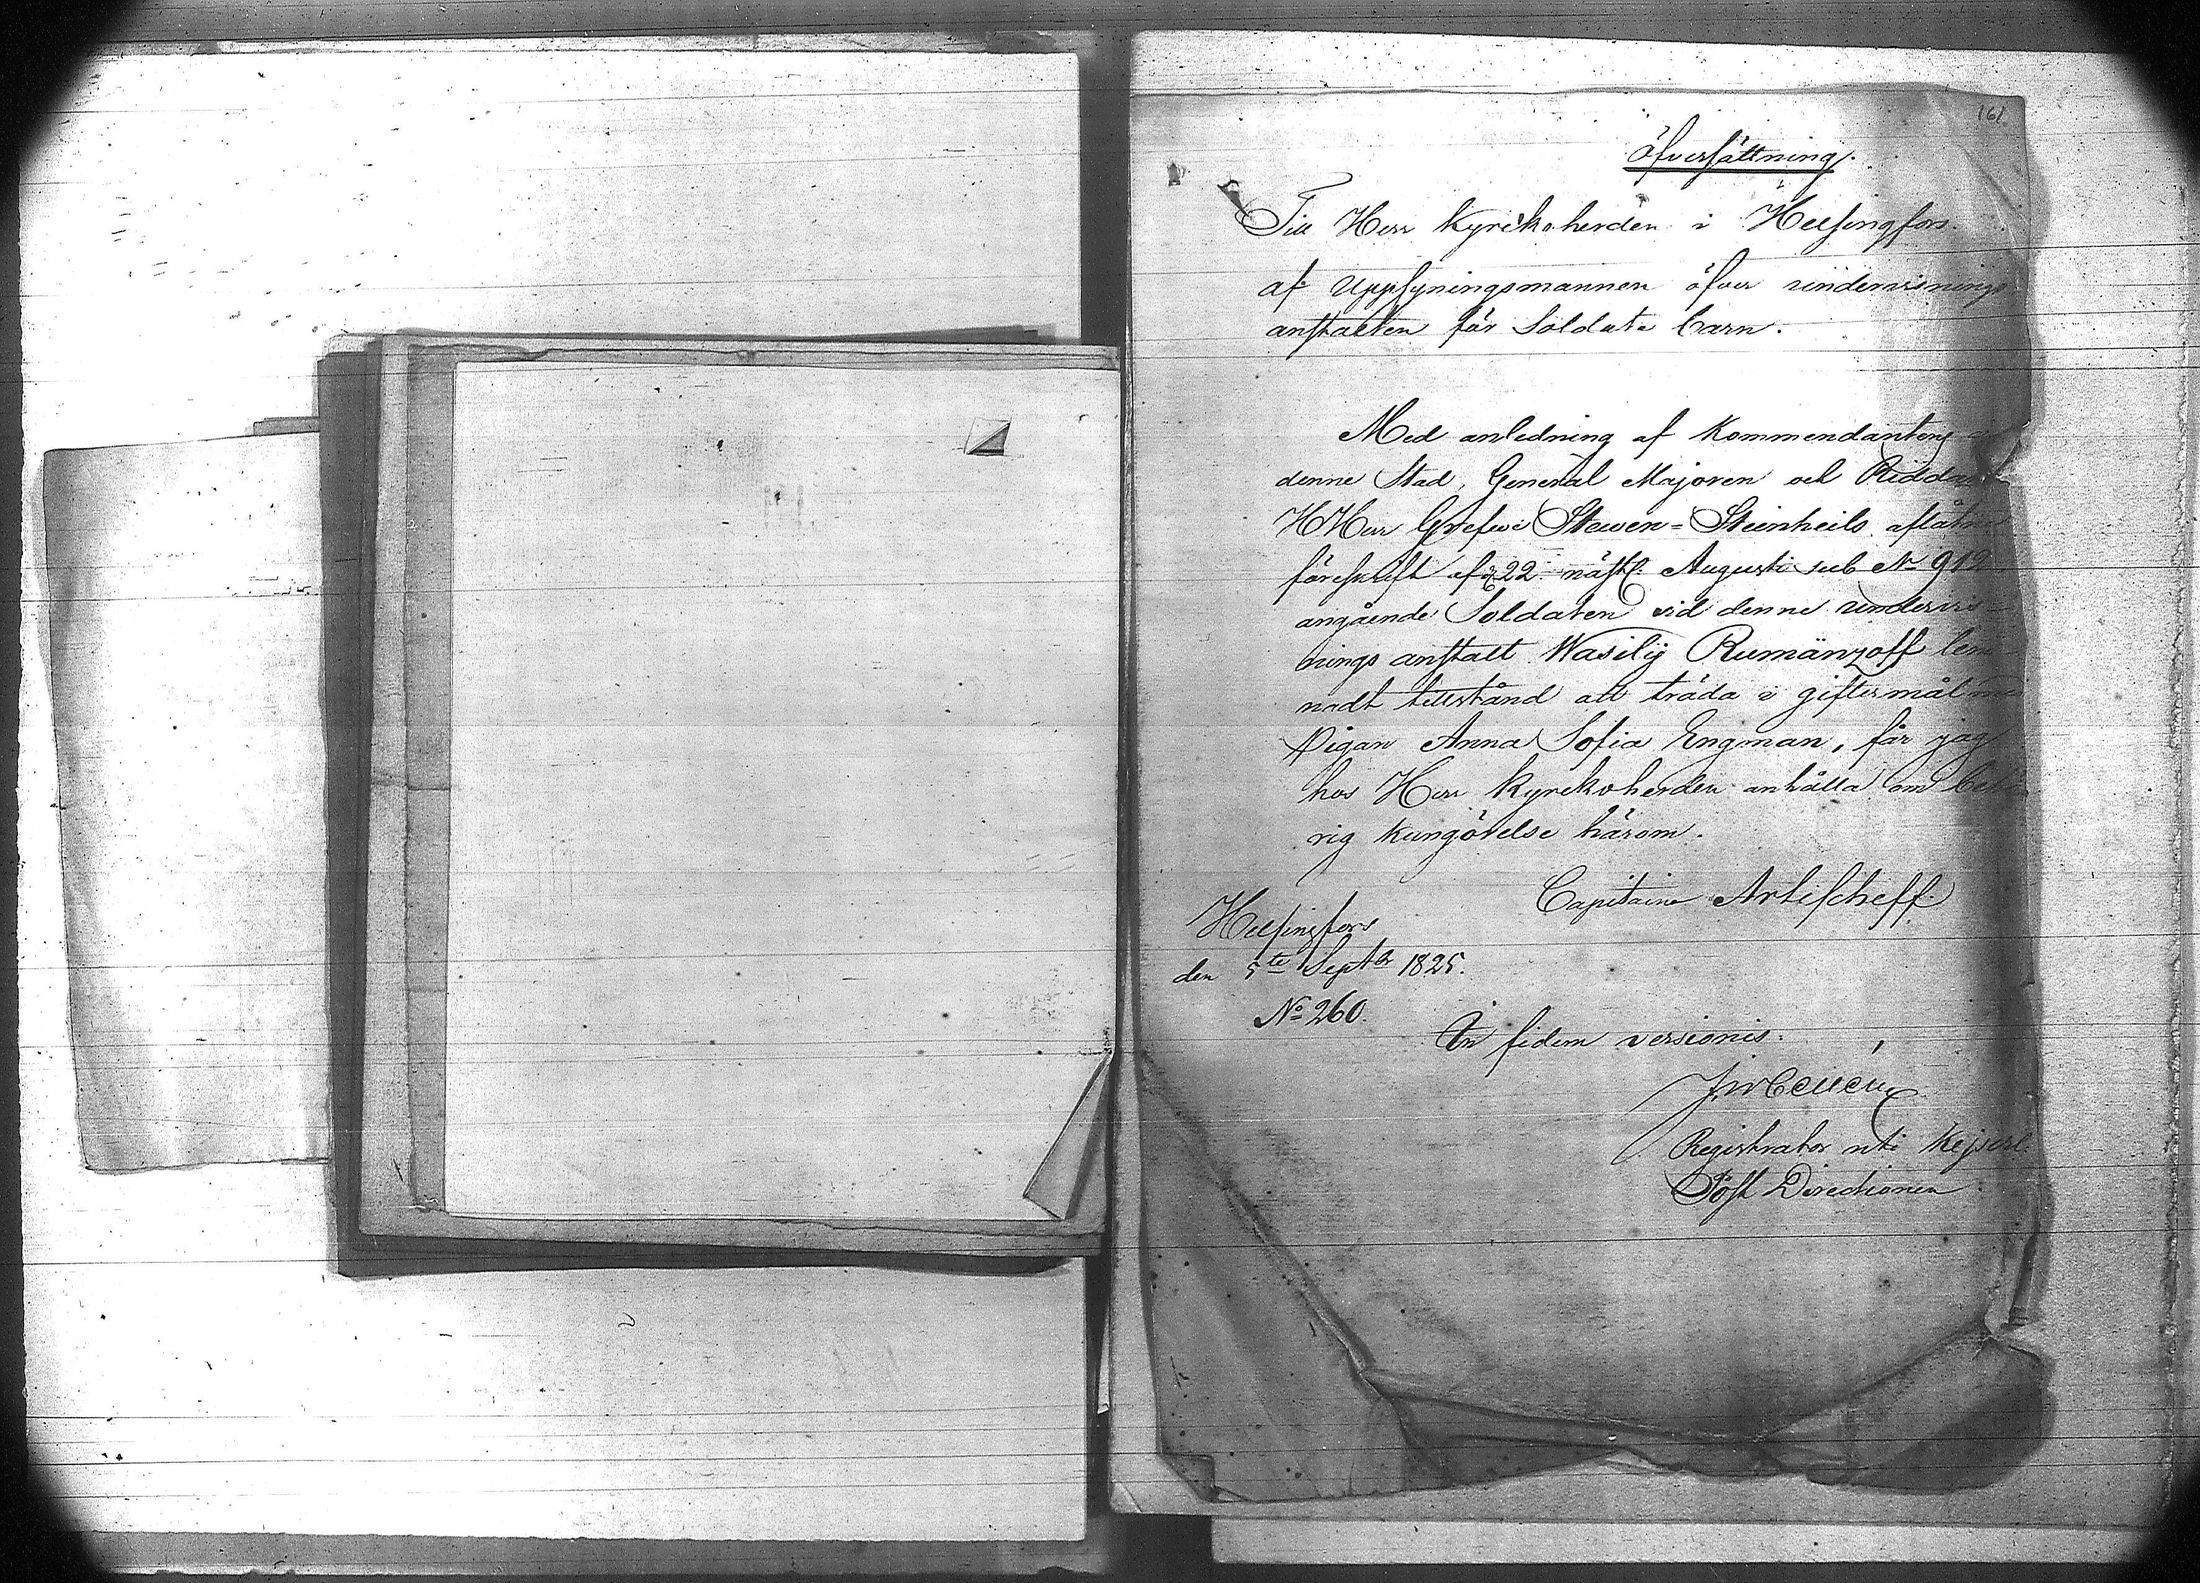 161
Öfversättning.
Till Herr Kyrkoherden i Helsingfors.
af Uppsyningsmannen öfver undervisnings
anstalten för Soldate barn.
Med anledning af Kommendantens
denne Stad, General Majoren och Riddar
HHerr Grefve Stewen=Steinheils aflåtne
föreskrift af d. 22 nästl. Augusti sub No 912
angående Soldaten vid denne undervis-
nings anstalt Wasilij Rumänzoff lem-
nadt tillstånd att träda i giftermål med
Pigan Anna Sofia Engman, får jag
hos Herr Kyrkoherden anhålla om behö-
rig kungörelse härom.
Capitaine Artischeff.
Helsingfors
den 5te Septbr 1825.
No 260.
In fidem versionis.
Registrator uti Kejserl.
Post Directionen